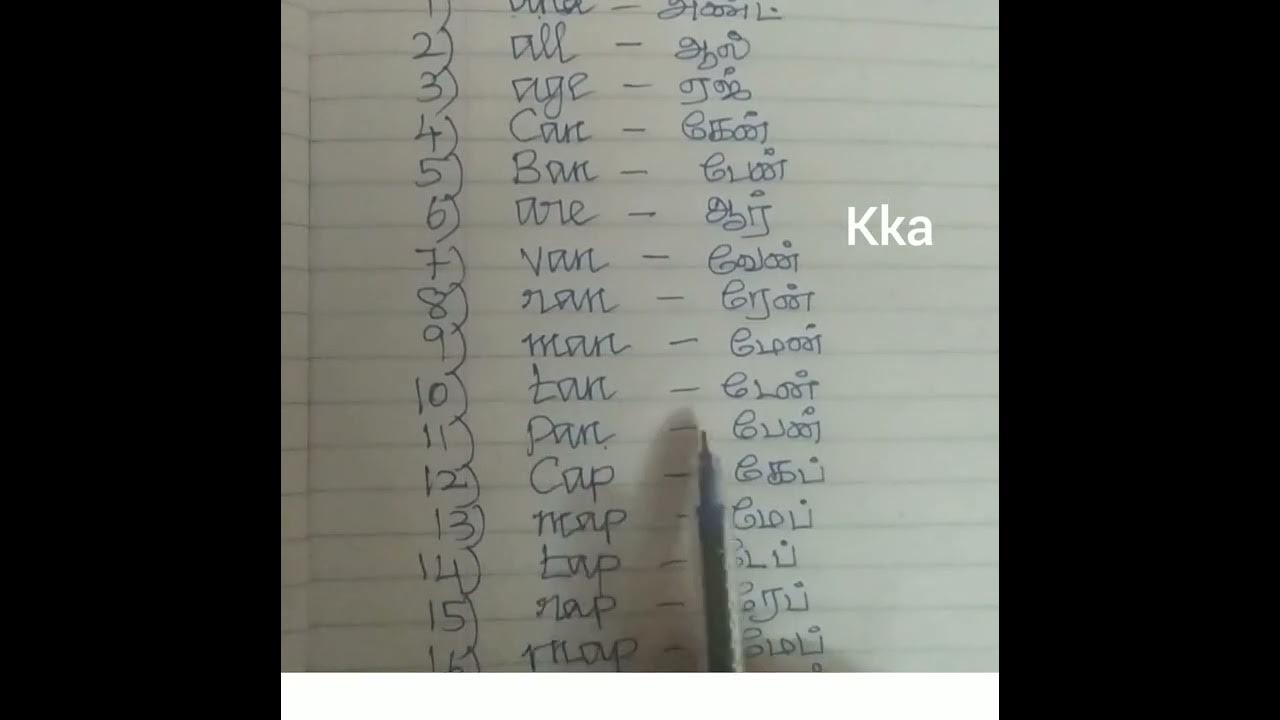 1) and – அண்ட்
2) all – ஆல்
3) age – ஏஜ்
4) Can – கேன்
5) Ban – பேன்
6) are – ஆர்
Kka
7) van – வேன்
8) ran – ரேன்
9) man – மேன்
10) tan – டேன்
11) Pan – பேன்
12) Cap – கேப்
13) map – மேப்
14) tap – டேப்
15) rap – ரேப்
16) map – மேப்